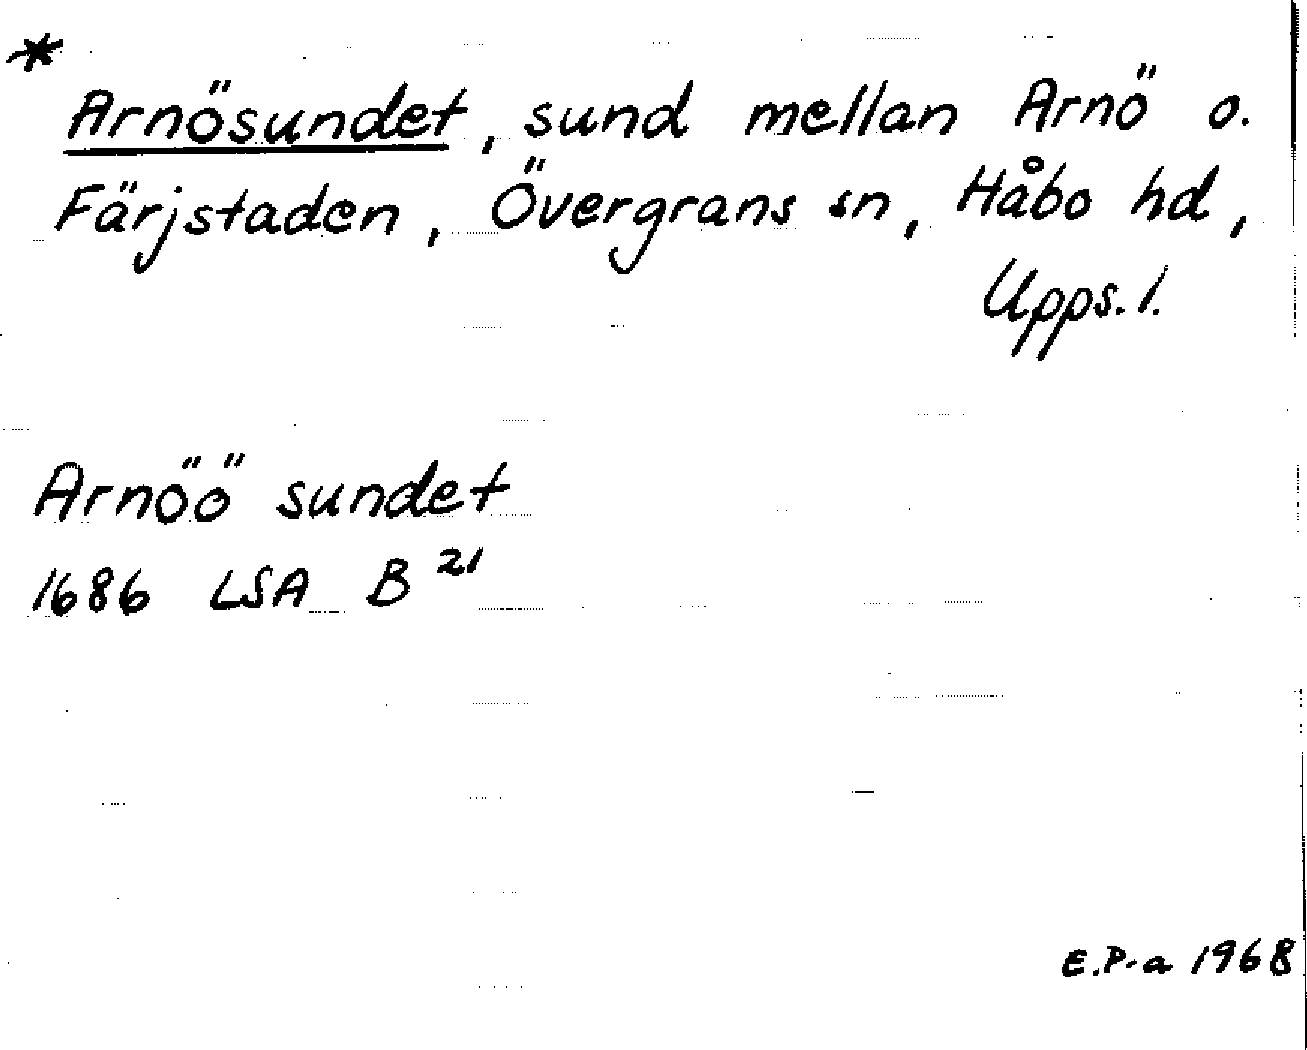 *
Arnösundet, sund mellan Arnö o.
Färjstaden, Övergrans sn, Håbo hd,
Upps. l.
Arnöö sundet
1686 LSA B 21
E.P-a 1968